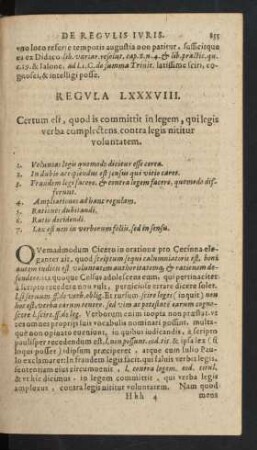 DE REGVLIS IVRIS. 855
vno loco referre temporis augustia non patitur, sufficitque
ex Didaco lib. variar. resolut. cap. 2. n. 4. & lib. practic. qu.
& Iasone. ad L. 1. C. de summa Trinit. latissime sciri, co-
gnosci, & intelligi posse.
REGVLA LXXXVIII.
Certum est, quod is committit in legem, qui legis
verba complectens contra legis nititur
voluntatem.
1. Voluntas legis quomodo dicatur esse certa.
2. In dubio accipiendus est sensus qui vitio caret.
3. Fraudem legi facere, & contra legem facere, quomodo dif-
ferunt.
4. Ampliationes ad hanc regulam.
5. Rationes dubitandi.
6. Ratio decidendi.
7. Lex est non in verborum foliis, sed in sensu.
QVemadmodum Cicero in oratione pro Cecinna ele-
ganter ait, quod scriptum sequi calumniatoris est, boni
autem iudicis est voluntatem auctoritatemq; & rationem de-
fendere. ita quoque Celsus adolescens eum, qui pertinaciter
à scripto recedendum non vult, perniciose errare dicere solet.
Et rursum scire leges (inquit) non
hoc est, verba earum tenere, sed vim ac potestatem earum cogno-
scere. l. scire. ff. de leg. Verborum enim inopta non præstat, ve
rerum nostro proprijs suis vocabulis nominari possint. multa-
que non adposito euentu, in quibus iudicandis, à scripto
paulisper recedendum est. & ipsa lex (si
loqui posset) id ipsum præciperet, atque cum Iulio Pau-
lo exclamaret: In fraudem legis facit, qui saluis verbis legis,
sententiam eius circumuenit, l. contra legem. eod. titul.
& vt hic dicimus. in legem committit, qui verba
amplexus, contra legis nititur voluntatem. Nam quod
Hhh 4 mens